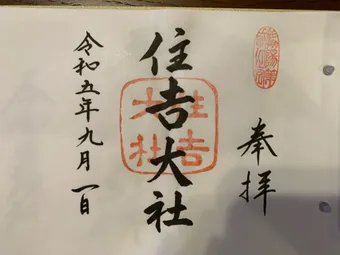 奉拝
住吉大社
住吉
大社
令和五年九月一日